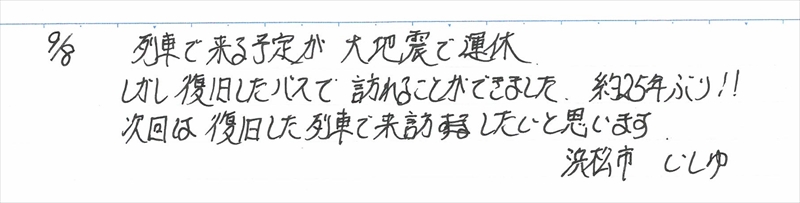 9/8 列車で来る予定が 大地震で運休
しかし復旧したバスで 訪れることができました、約25年ぶり!!
次回は 復旧した列車で来訪するしたいと思います
浜松市 じしゆ